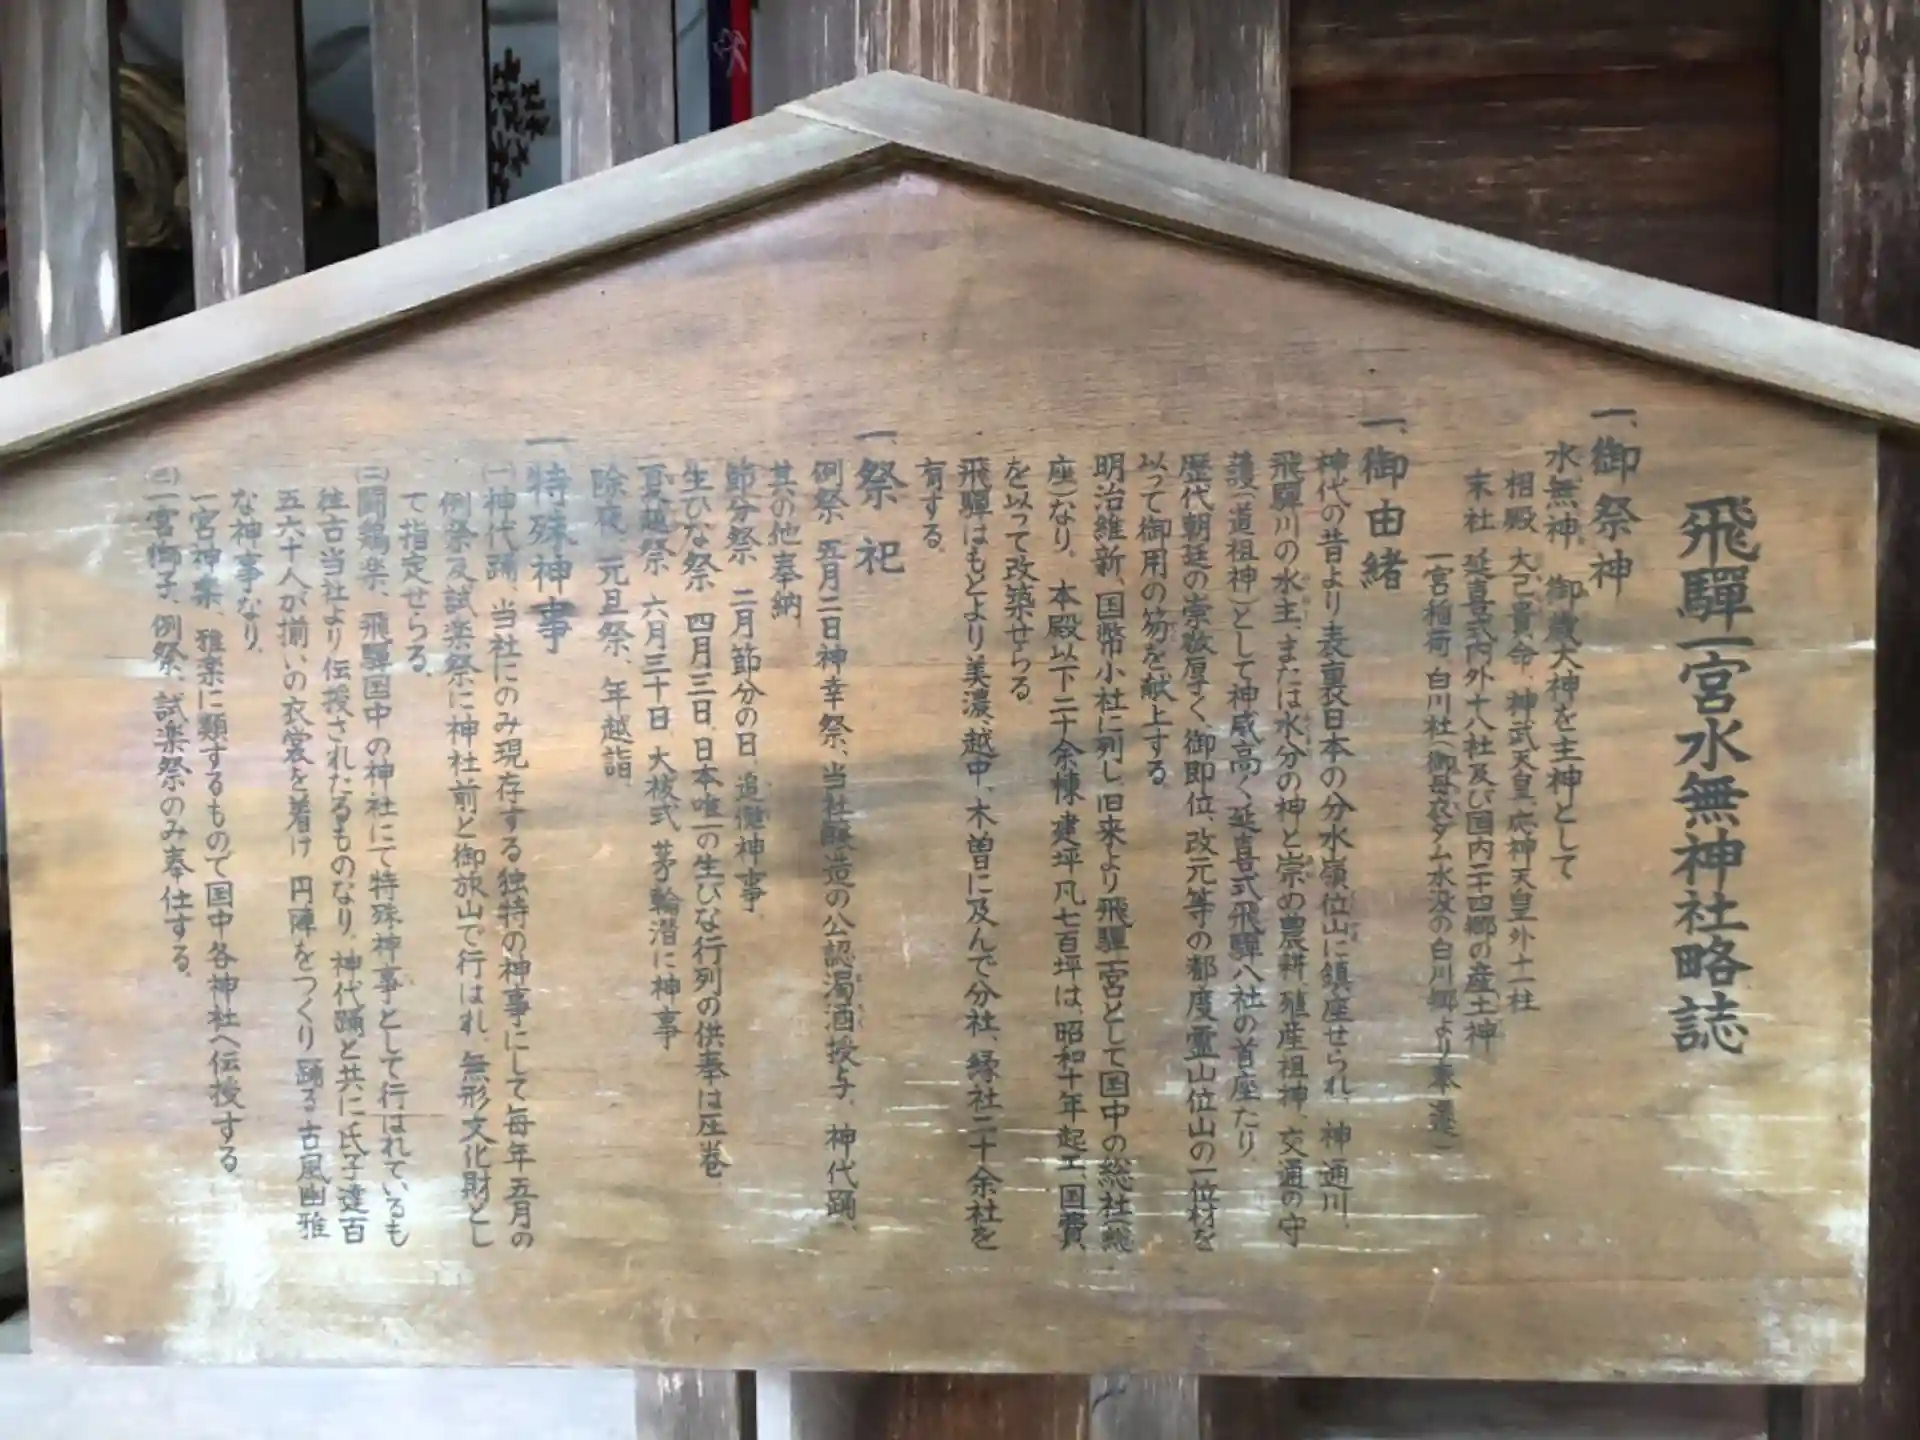 飛騨一宮水無神社略誌
一、御祭神
水無神 御歳大神を主神として
相殿 大己貴命、神武天皇、応神天皇外十一柱
末社 延喜式内外十八社及び国内二十四郷の産土神
一宮稲荷、白川社(御母衣ダム水没の白川郷より奉遷)
一、御由緒
神代の昔より表裏日本の分水嶺位山に鎮座せられ、神通川、
飛騨川の水主、または水分の神と崇め農耕、殖産祖神、交通の守
護(道祖神)として神威高く延喜式飛騨八社の首座たり
歴代朝廷の崇敬厚く、御即位、改元等の都度霊山位山の一位材を
以って御用の笏を献上する。
明治維新、国幣小社に列し、旧来より飛騨一宮として国中の総社(総
座)なり。本殿以下二十余棟、建坪凡七百坪は、昭和十年起工、国費
を以って改築せらる
飛騨はもとより美濃、越中、木曽に及んで分社、縁社二十余社を
有する。
一、祭祀
例祭、五月二日神幸祭、当社醸造の公認濁酒授与、神代踊、
其の他奉納
節分祭 二月節分の日、追儺神事
生びな祭 四月三日、日本唯一の生びな行列の供奉は圧巻
夏越祭 六月三十日、大祓式 茅輪潜に神事
除夜、元旦祭、年越詣
一、特殊神事
㈠神代踊、当社にのみ現存する独特の神事にして毎年五月の
例祭及試楽祭に神社前と御旅山で行はれ、無形文化財とし
て指定せらる。
㈡闘鶏楽、飛騨国中の神社にて特殊神事として行はれているも
往古当社より伝授されたるものなり。神代踊と共に氏子達百
五六十人が揃いの衣裳を着け 円陣をつくり踊る古風幽雅
な神事なり。
一宮神楽、雅楽に類するもので国中各神社へ伝授する
㈢一宮獅子、例祭、試楽祭のみ奉仕する。